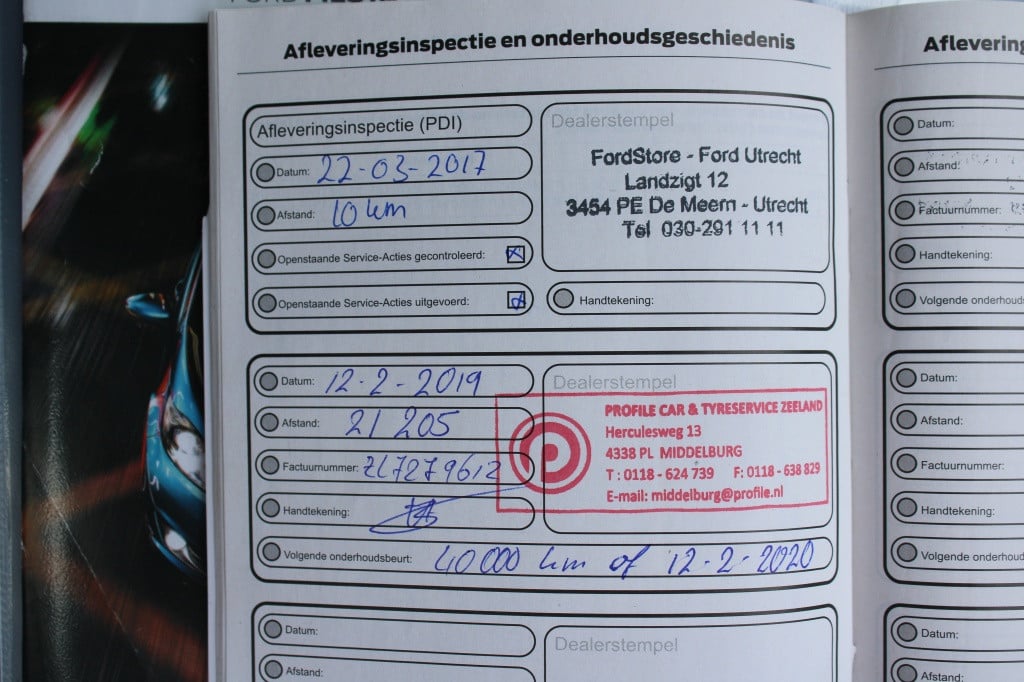 Afleveringsinspectie en onderhoudsgeschiedenis
Afleveringsinspectie (PDI)
Datum: 22-03-2017
Afstand: 10 km
Openstaande Service-Acties gecontroleerd:
Openstaande Service-Acties uitgevoerd:
Dealerstempel
FordStore - Ford Utrecht
Landzigt 12
3454 PE De Meern - Utrecht
Tel 030-291 11 11
Handtekening:
Datum: 12-2-2019
Afstand: 21 205
Factuurnummer: ZL7279612
Handtekening:
Volgende onderhoudsbeurt: 40 000 km of 12-2-2020
Dealerstempel
PROFILE CAR & TYRESERVICE ZEELAND
Herculesweg 13
4338 PL MIDDELBURG
T : 0118 - 624 739 F: 0118 - 638 829
E-mail: middelburg@profile.nl
Datum:
Afstand:
Dealerstempel
Aflevering
Datum:
Afstand:
Factuurnummer:
Handtekening:
Volgende onderhouds
Datum:
Afstand:
Factuurnummer:
Handtekening:
Volgende onderhoud
Datum:
Afstand: